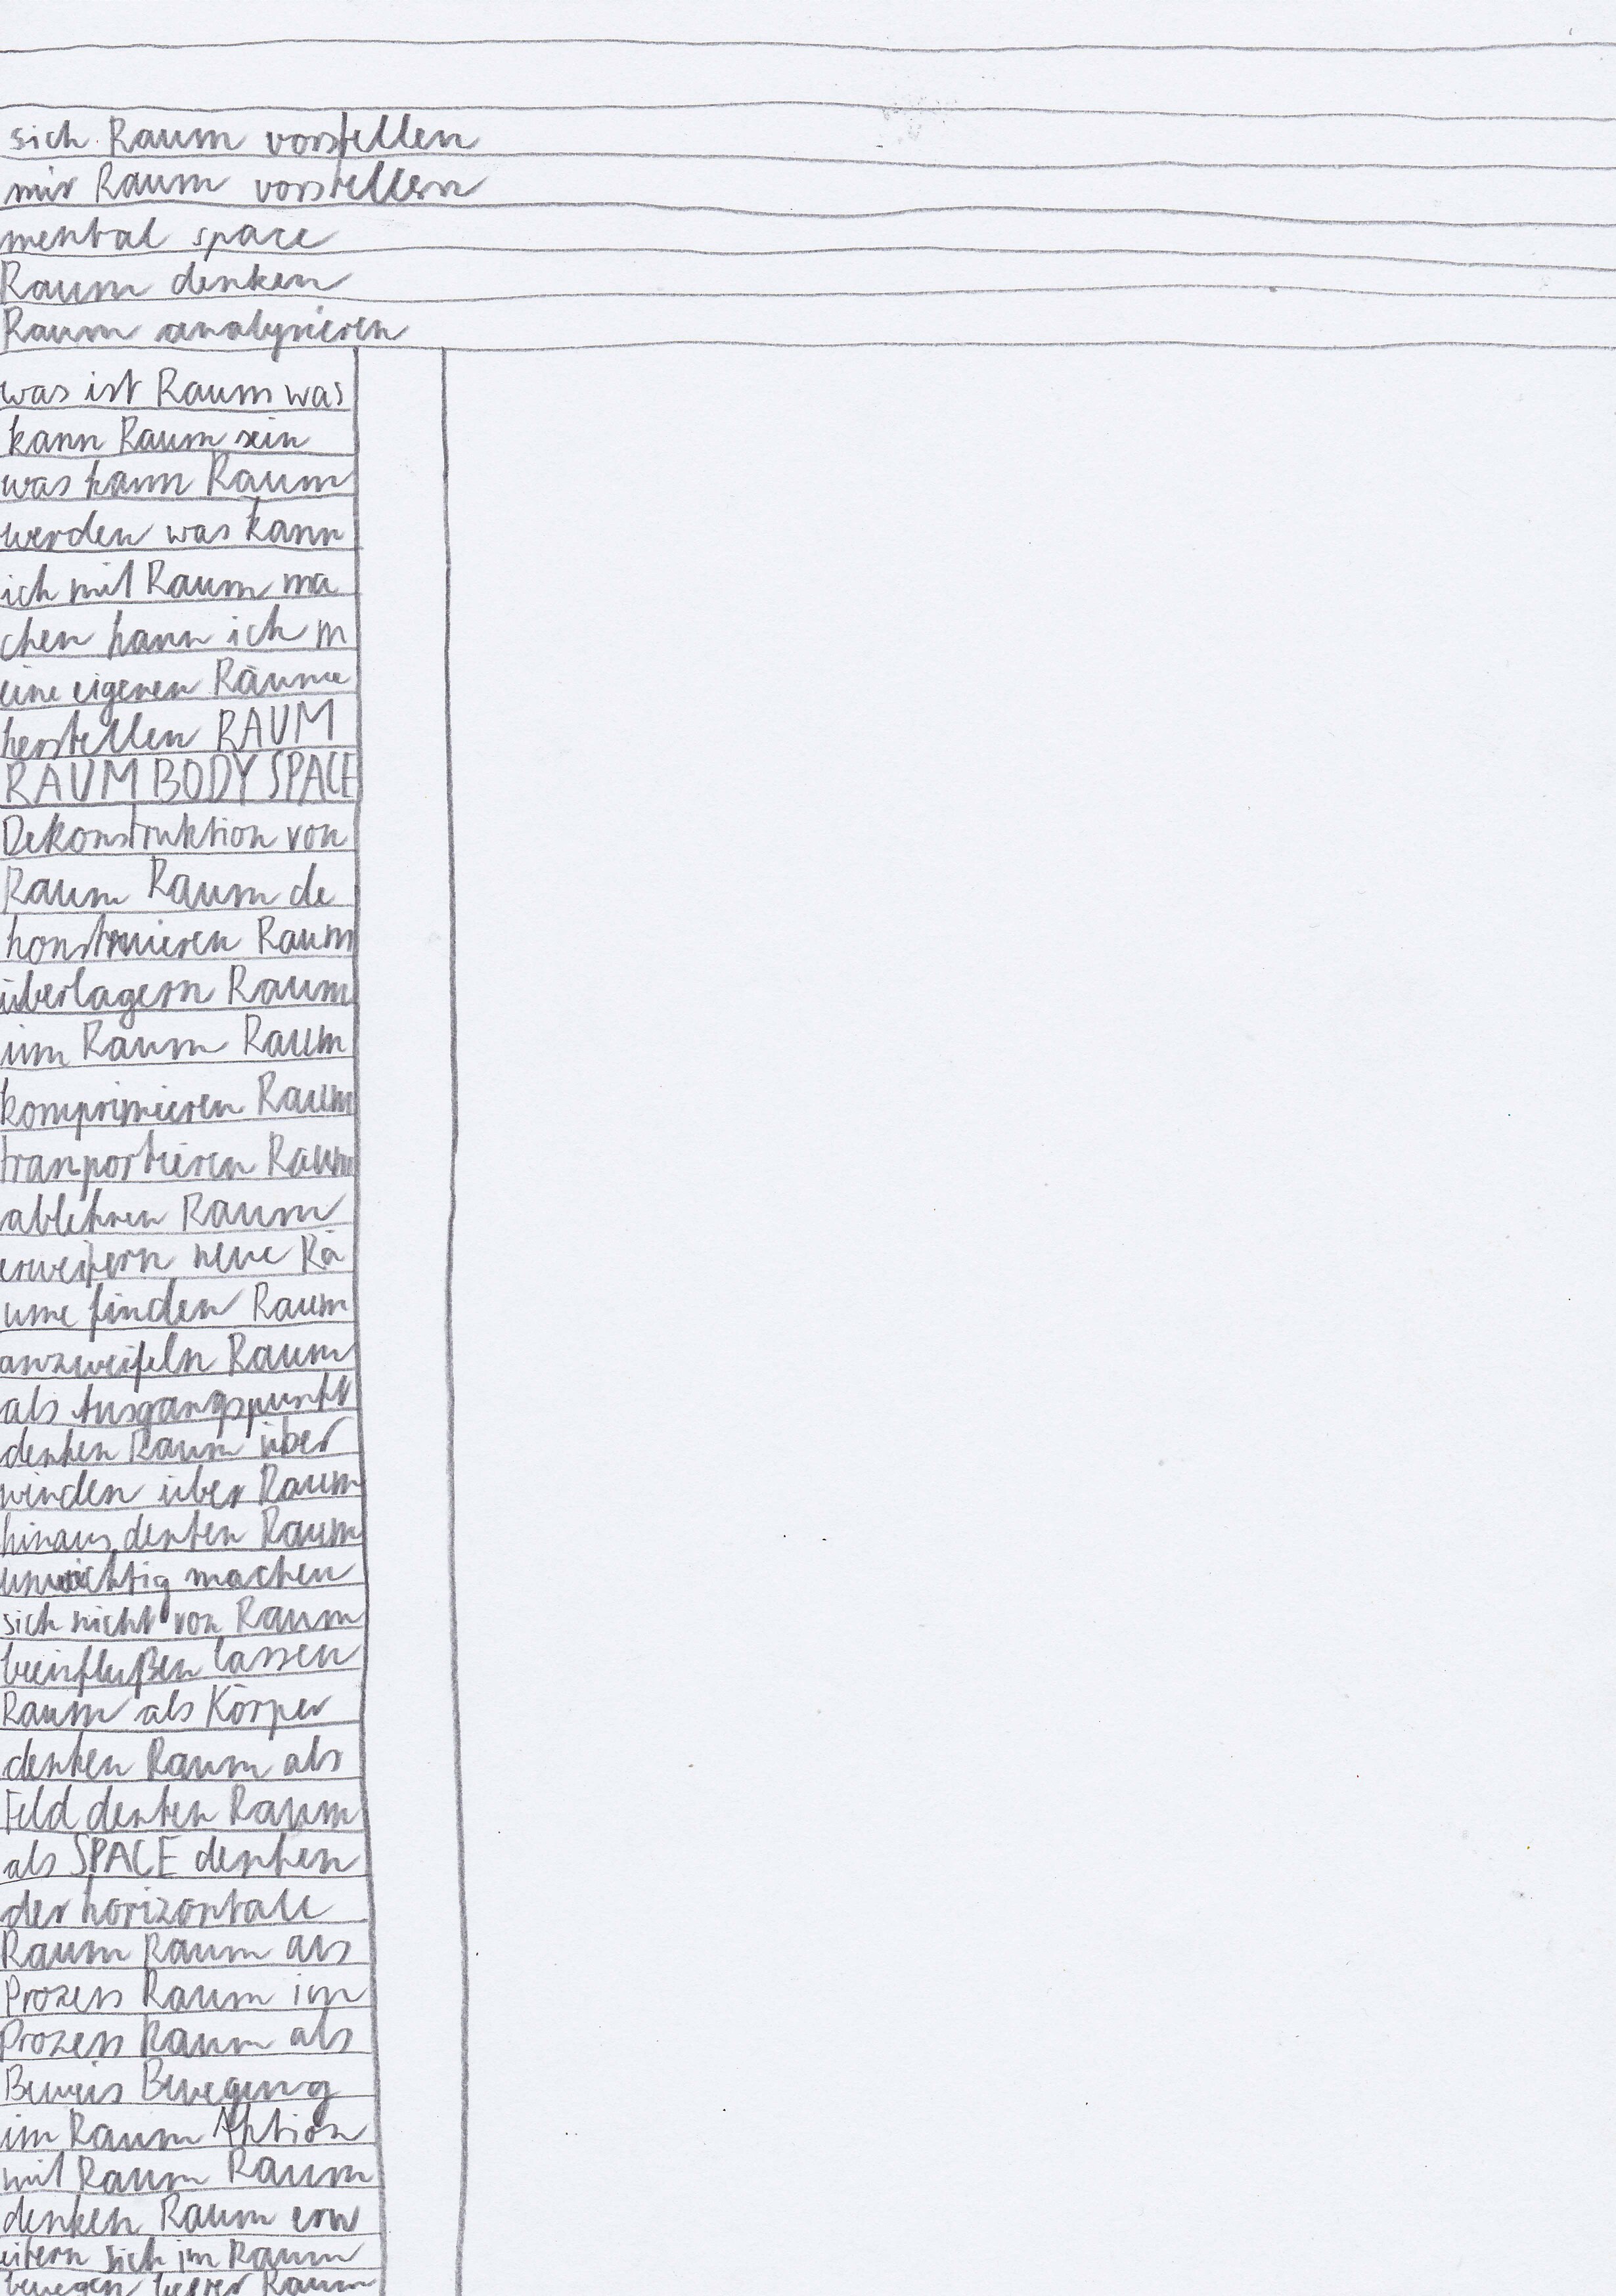 sich Raum vorstellen
mir Raum vorstellen
mental space
Raum denken
Raum analysieren
was ist Raum was
kann Raum sein
was kann Raum
werden was kann
ich mit Raum ma
chen kann ich m
eine eigenen Räume
herstellen RAUM
RAUM BODY SPACE
Dekonstruktion von
Raum Raum de
konstruieren Raum
überlagern Raum
im Raum Raum
komprimieren Raum
tranportieren Raum
ablehnen Raum
erweitern neue Rä
ume finden Raum
anzweifeln Raum
als Ausgangspunkt
denken Raum über
winden über Raum
hinaus denken Raum
unwichtig machen
sich nicht von Raum
beeinflußen lassen
Raum als Körper
denken Raum als
Feld denken Raum
als SPACE denken
der horizontale
Raum Raum als
Prozess Raum im
Prozess Raum als
Beweis Bewegung
im Raum Aktion
mit Raum Raum
denken Raum erw
eitern sich im Raum
bewegen leerer Raum